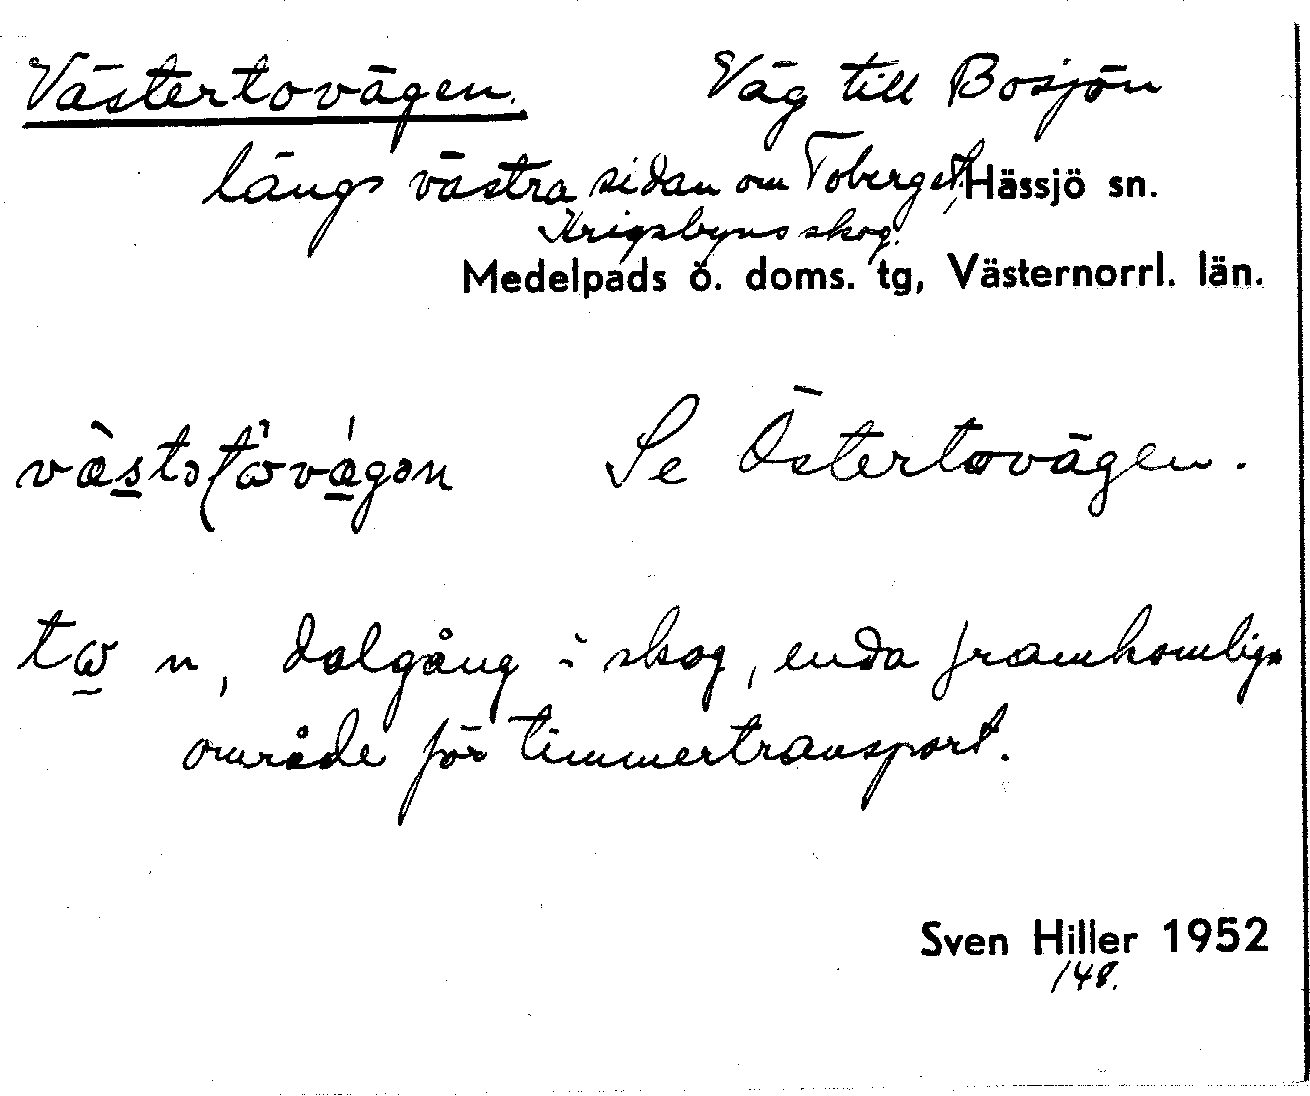 Västertovägen. Väg till Bosjön
längs västra sidan om Toberget, Hässjö sn.
Krigsbyns skog.
Medelpads ö. doms. tg, Västernorrl. län.
Se Östertovägen.
n, dalgång i skog, enda framkomliga
område för timmertransport.
Sven Hiller 1952
148.